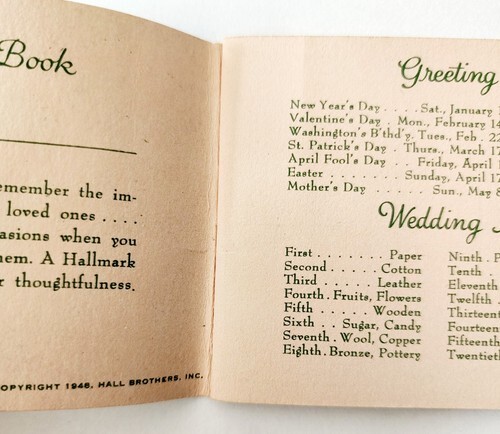 Book
emember the im-
loved ones ....
asions when you
hem. A Hallmark
r thoughtfulness.
OPYRIGHT 1948, HALL BROTHERS, INC.
Greeting
New Year's Day . . . . Sat., January
Valentine's Day . Mon., February 14
Washington's B'thd'y. Tues., Feb. 22
St. Patrick's Day . Thurs., March 17
April Fool's Day . . Friday, April
Easter . . . . . . Sunday, April 17
Mother's Day . . . . Sun., May 8
Wedding
First . . . . . . . Paper
Second . . . . . Cotton
Third . . . . . Leather
Fourth. Fruits, Flowers
Fifth . . . . . Wooden
Sixth . . Sugar, Candy
Seventh. Wool, Copper
Eighth. Bronze, Pottery
Ninth . P
Tenth .
Eleventh
Twelfth .
Thirteent
Fourteen
Fifteenth
Twentiet